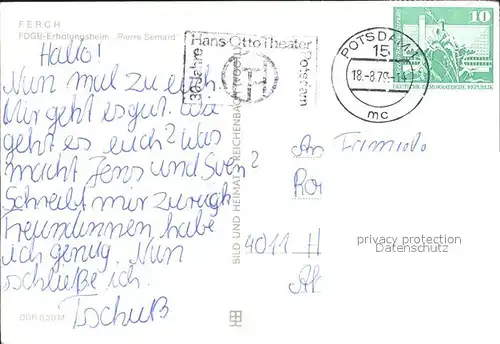 FERCH
FDGB-Erholungsheim „Pierre Semard"
Hallo!
Nun mal zu euch.
Mir geht es gut. Wie
geht es euch? Was
macht Jens und Sven?
Schreibt mir zurück
Freundinnen habe
ich genug. Nun
schließe ich.
Tschuß
DDR 0,20 M
BILD UND HEIMAT REICHENBACH
30 Jahre
Hans-Otto-Theater
Potsdam
POTSDAM 1
15
18.-8.79.-14
mc
10
DEUTSCHE DEMOKRATISCHE REPUBLIK
An Familie
4011 H
privacy protection
Datenschutz